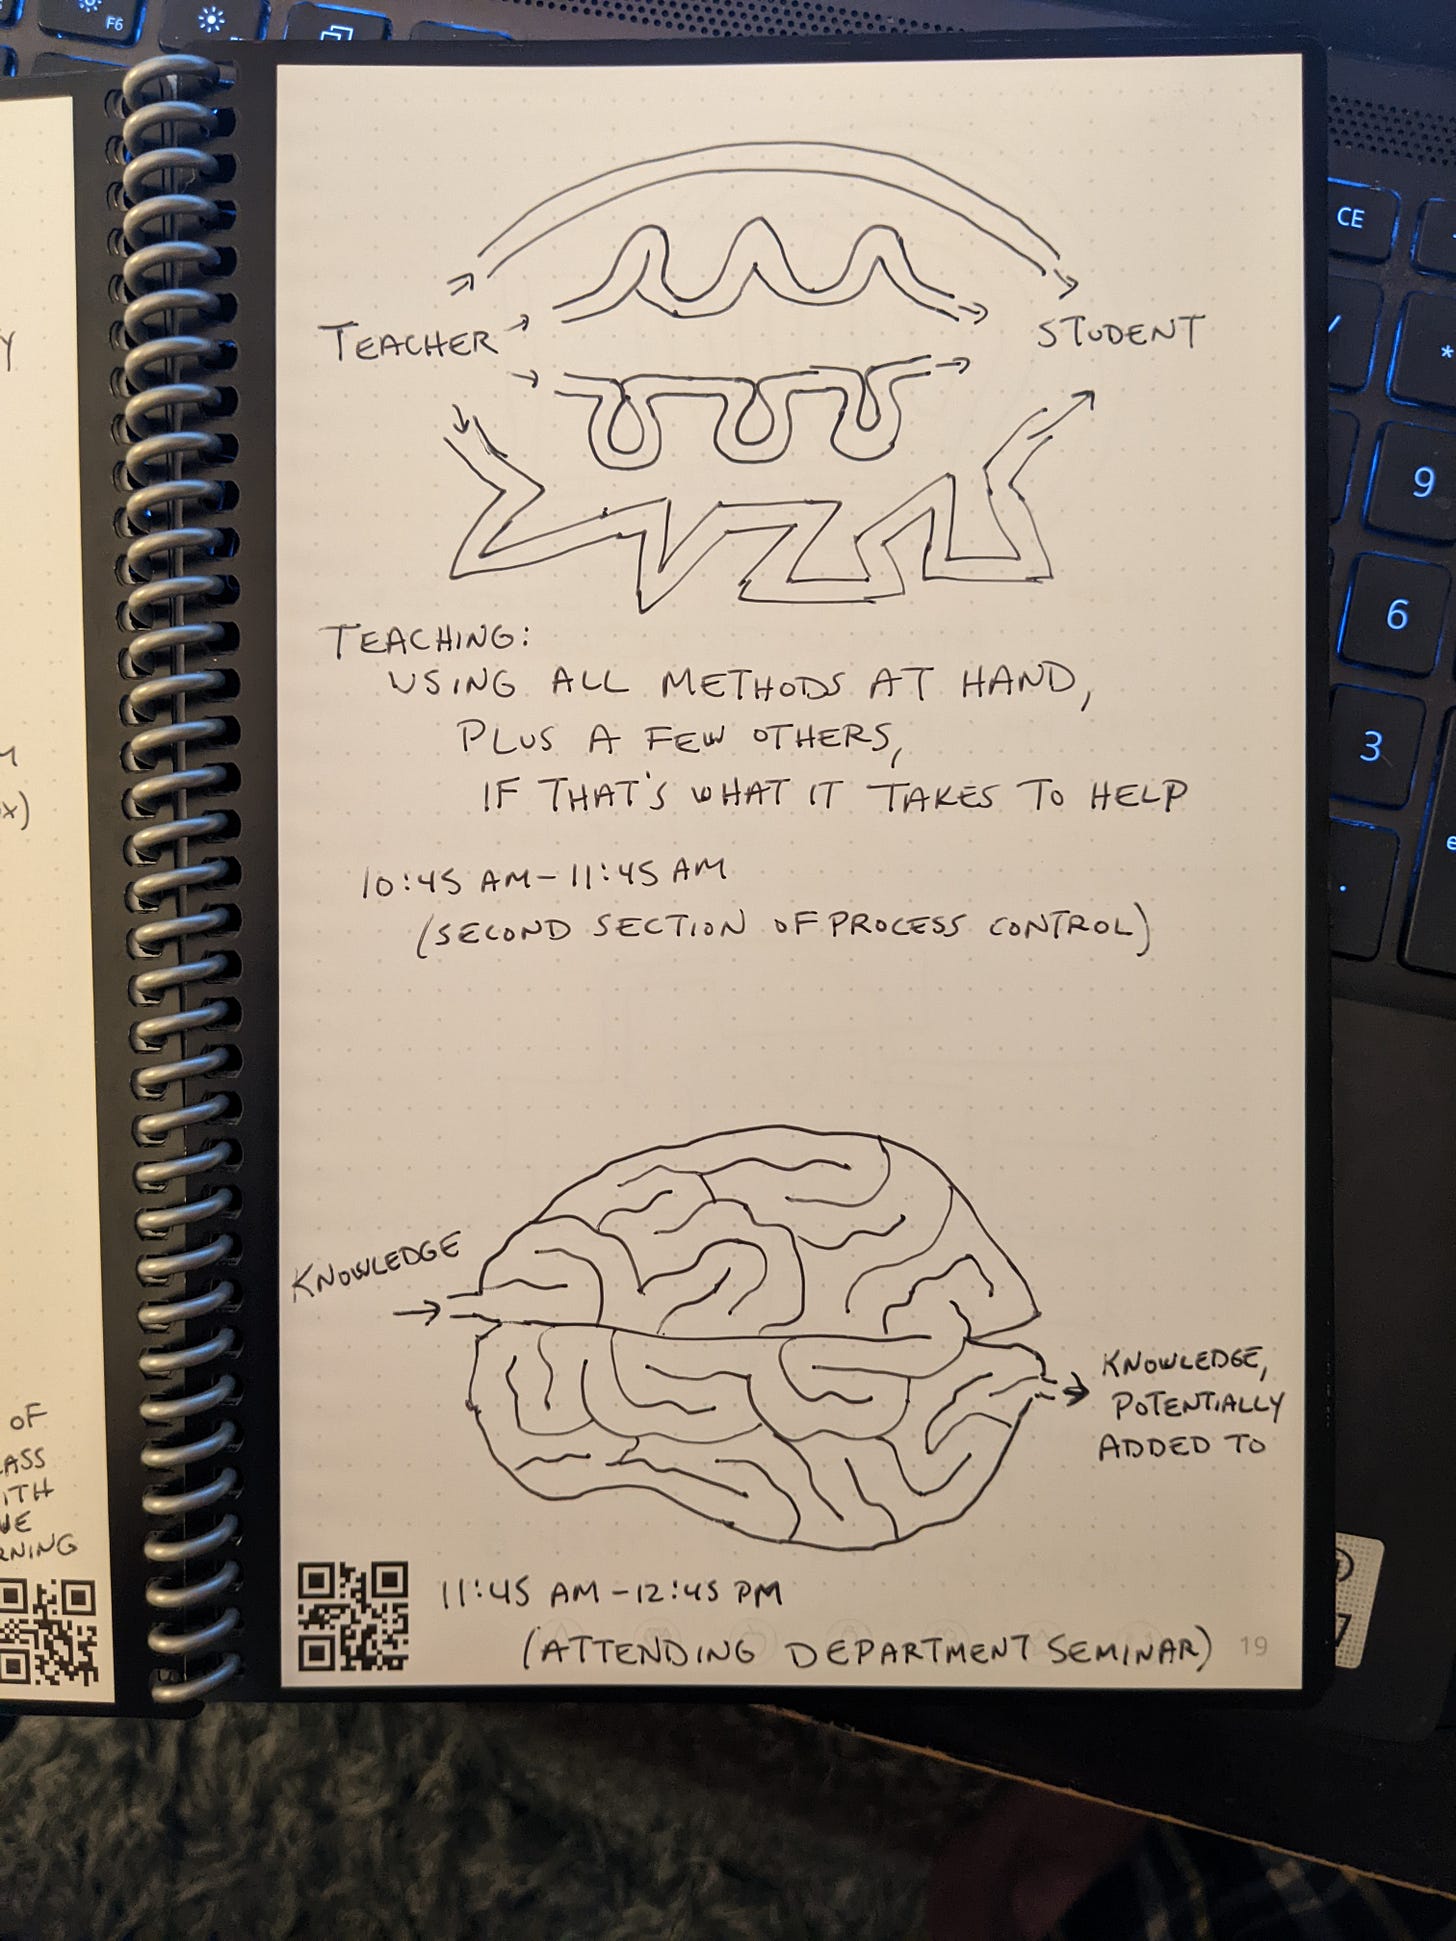 F6
CE
9
6
3
TEACHER
STUDENT
TEACHING:
USING ALL METHODS AT HAND,
PLUS A FEW OTHERS,
IF THAT'S WHAT IT TAKES TO HELP
10:45 AM - 11:45 AM
(SECOND SECTION OF PROCESS CONTROL)
KNOWLEDGE
KNOWLEDGE,
POTENTIALLY
ADDED TO
11:45 AM - 12:45 PM
(ATTENDING DEPARTMENT SEMINAR)
19
OF